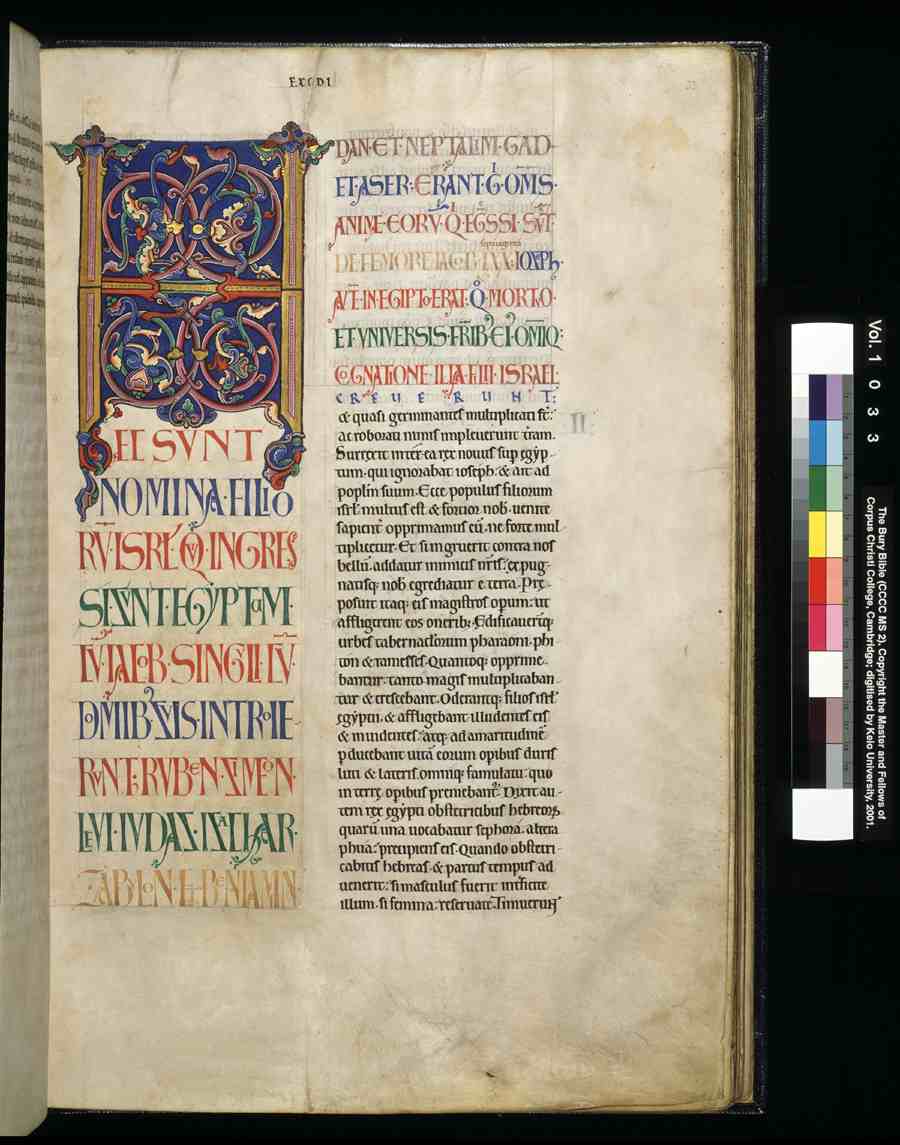 EXODI
33
HEC SVNT
NOMINA·FILIO
RV̄·ISRL̄·Q̄·INGRES
SI·SVNT·EGYPTVM·
CV̄·IACOB·SINGVLI·CV̄·
DOMIBVS·SVIS·INTROIE
RVNT·RVBEN·SYMEON·
LEVI·IVDAS·ISACHAR·
ZABVLON·ET·BENIAMIN·
DAN·ET·NEPTALIM·GAD·
ET·ASER·ERANT·IGI·OMS·
ANIME·EORV·Q·EGSSI·SVT
DE FEMORE IACOB·LXX·IOSEPH·
AVT̄·IN·EGIPTO·ERAT·Q̊·MORTO·
ET VNIVERSIS·FRIB;·EI·OMIQ;
COGNATIONE·ILLA·FILII·ISRAEL·
CREVERVNT:
& quasi germinantes multiplicati st̄:
ac roborati nimis impleuerunt terram.
Surrexit interea rex nouus sup egyp-
tum·qui ignorabat ioseph·& ait ad
poplm suum·Ecce populus filiorum
isrl̄ multus est & fortior nob·uenite
sapient̄ opprimamus eū·ne forte mul
tiplicetur·Et si ingruerit contra nos
bellū·addatur inimicis nr̄is·expug-
natisq; nob egrediatur e terra·Pre-
posuit itaq; eis magistros operum·ut
affligerent eos oneribꝫ·Edificauerūtq;
urbes tabernaclorum pharaoni·phi
ton & ramesses·Quantoq; opprime-
bantur·tanto magis multiplicaban-
tur & crescebant·Oderantq; filios isrl̄
egyptii·& affligebant illudentes eis
& inuidentes·atq; ad amaritudinē
pducebant uitā eorum opibus duris
luti & lateris·omniq; famulatu·quo
in terre opibus premebant̄·Dixit au-
tem rex egypti obstetricibus hebreorꝫ
quarū una uocabatur sephora·altera
phua·precipiens eis·Quando obstetri-
cabitis hebreas·& partus tempus ad
uenerit·si masculus fuerit interficite
illum·si femina·reseruate·Timuerunt
II·
Vol. 1 0 3 3
The Bury Bible (CCCC MS 2). Copyright the Master and Fellows of
Corpus Christi College, Cambridge; digitised by Keio University, 2001.